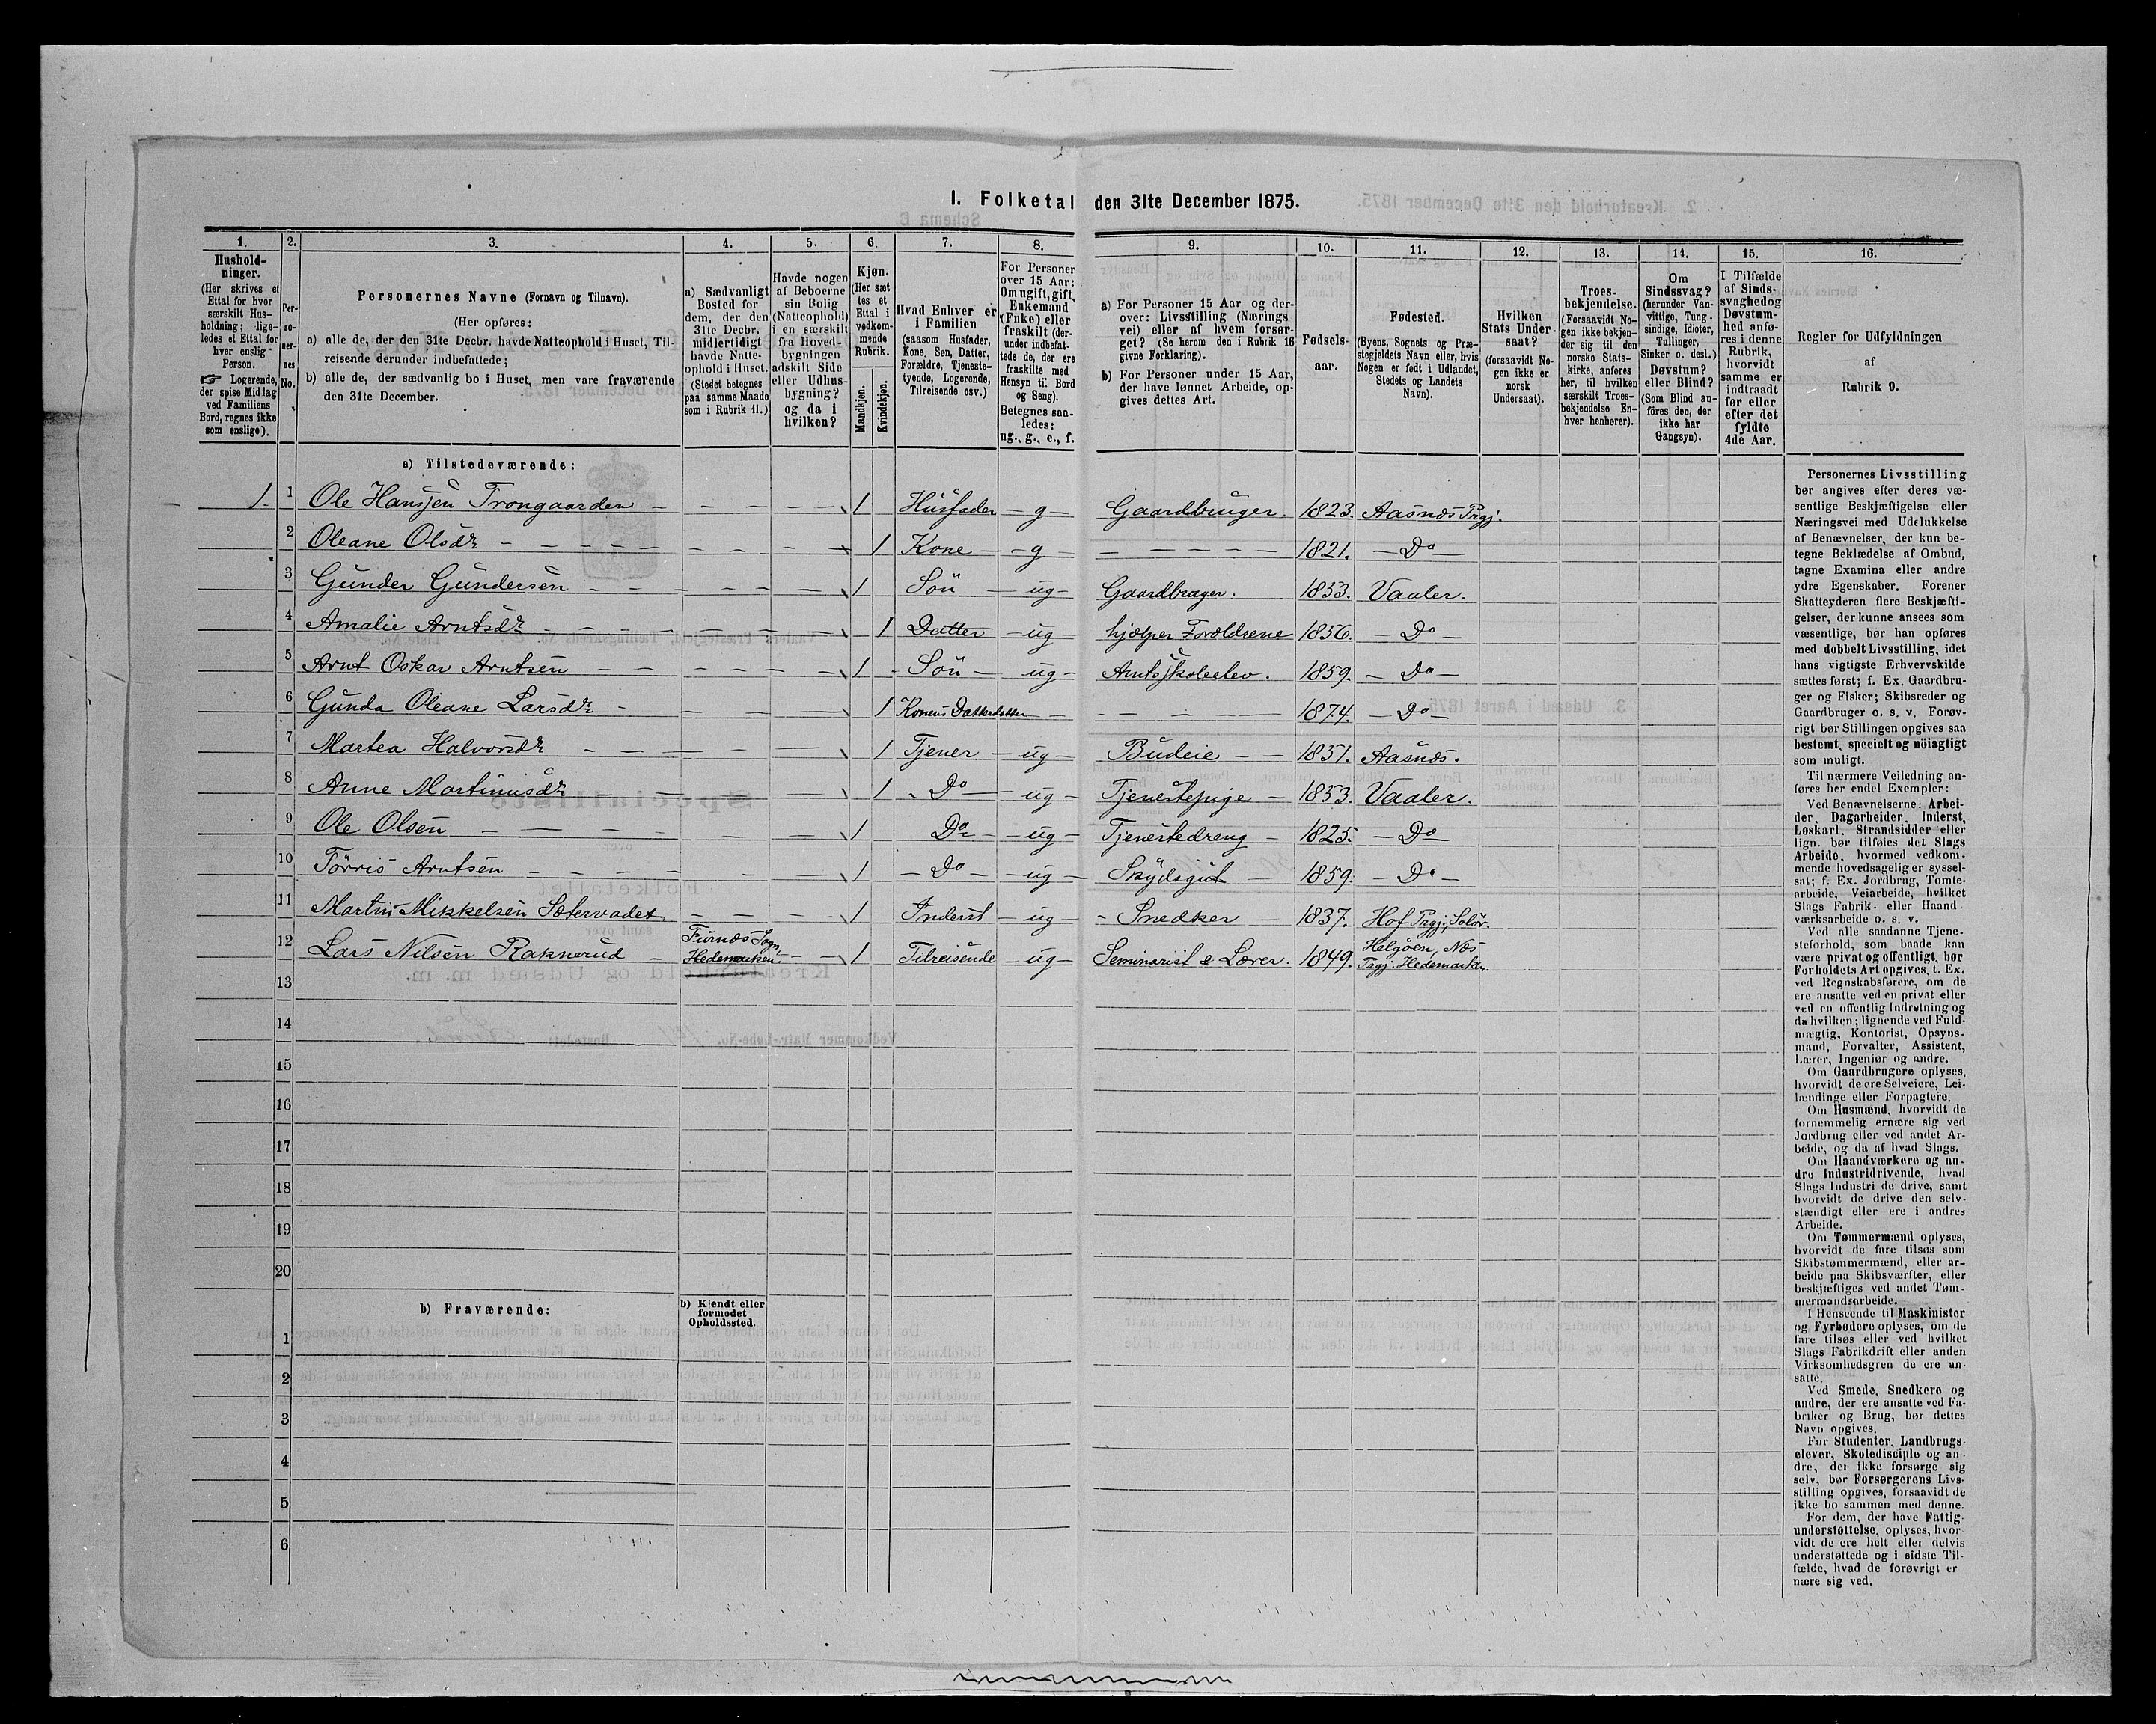 I. Folketal den 31te December 1875.
1. 2. 3. 4. 5. 6. 7. 8. 9. 10. 11. 12. 13. 14. 15. 16.
Hushold-
ninger.
(Her skrives et
Ettal for hver
særskilt Hus-
holdning; lige-
ledes et Ettal for
hver enslig
Person.
☞ Logerende,
der spise Middag
ved Familiens
Bord, regnes ikke
som enslige).
Per-
so-
ner-
nes
No.
Personernes Navne (Fornavn og Tilnavn).
(Her opføres:
a) alle de, der den 31te Decbr. havde Natteophold i Huset, Til-
reisende derunder indbefattede;
b) alle de, der sædvanlig bo i Huset, men vare fraværende
den 31te December.
a) Sædvanligt
Bosted for
dem, der den
31te Decbr.
midlertidigt
havde Natte-
ophold i Huset.
(Stedet betegnes
paa samme Maade
som i Rubrik 11.)
Havde nogen
af Beboerne
sin Bolig
(Natteophold)
i en særskilt
fra Hoved-
bygningen
adskilt Side
eller Udhus-
bygning?
og da i
hvilken?
Kjøn.
(Her sæt
tes et
Ettal i
vedkom-
mende
Rubrik.
Mandkjøn.
Kvindekjøn.
Hvad Enhver er
i Familien
(saasom Husfader,
Kone, Søn, Datter,
Forældre, Tjeneste-
tyende, Logerende,
Tilreisende osv.)
For Personer
over 15 Aar:
Om ugift, gift,
Enkemand
(Enke) eller
fraskilt (der-
under indbefat-
tede de, der ere
fraskilte med
Hensyn til Bord
og Seng).
Betegnes saa-
ledes:
ug., g., e., f.
a) For Personer 15 Aar og der-
over: Livsstilling (Nærings
vei) eller af hvem forsør-
get? (Se herom den i Rubrik 16
givne Forklaring).
b) For Personer under 15 Aar,
der have lønnet Arbeide, op-
gives dettes Art.
Fødsels-
aar.
Fødested.
(Byens, Sognets og Præ-
stegjeldets Navn eller, hvis
Nogen er født i Udlandet,
Stedets og Landets
Navn).
Hvilken
Stats Under-
saat?
(forsaavidt No-
gen ikke er
norsk
Undersaat).
Troes-
bekjendelse.
(Forsaavidt No-
gen ikke bekjen-
der sig til den
norske Stats-
kirke, anføres
her, til hvilken
særskilt Troes-
bekjendelse En-
hver henhører).
Om
Sindssvag?
(herunder Van-
vittige, Tung-
sindige, Idioter,
Tullinger,
Sinker o. desl.)
Døvstum?
eller Blind?
(Som Blind an-
føres den, der
ikke har
Gangsyn).
I Tilfælde
af Sinds-
svaghed og
Døvstum-
hed anfø-
res i denne
Rubrik,
hvorvidt
samme er
indtraadt
før eller
efter det
fyldte
4de Aar.
Regler for Udfyldningen
af
Rubrik 9.
a) Tilstedeværende:
1. 1 Ole Hansen Trongaarden 1 Husfader g Gaardbruger. 1823. Aasnæs Prgj.
2 Oleane Olsdr 1 Kone g 1821. Do
3 Gunder Gundersen 1 Søn ug Gaardbruger. 1853. Vaaler.
4 Amalie Arntsdr 1 Datter ug hjælper Forældrene 1856. Do
5 Arnt Oskar Arntsen 1 Søn ug Amtsskoleelev. 1859. Do
6 Gunda Oleane Larsdr 1 Konens Datterdatter 1874. Do
7 Martea Halvorsdr 1 Tjener ug Budeie 1851. Aasnæs.
8 Anne Martinusdr 1 Do ug Tjenestepige 1853. Vaaler.
9 Ole Olsen 1 Do ug Tjenestedreng 1825. Do
10 Törris Arntsen 1 Do ug Skydsgut 1859. Do
11 Martin Mikkelsen Sætervadet 1 Inderst ug Snedker 1837. Hof Prgj; Solör.
12 Lars Nilsen Raknerud Furnæs Sogn, Hedemarken. 1 Tilreisende ug Seminarist & Lærer. 1849. Helgøen, Næs Prgj. Hedemarken.
13
14
15
16
17
18
19
20
b) Fraværende:
b) Kjendt eller
formodet
Opholdssted.
1
2
3
4
5
6
Personernes Livsstilling
bør angives efter deres væ-
sentlige Beskjæftigelse eller
Næringsvei med Udelukkelse
af Benævnelser, der kun be-
tegne Beklædelse af Ombud,
tagne Examina eller andre
ydre Egenskaber. Forener
Skatteyderen flere Beskjæfti-
gelser, der kunne ansees som
væsentlige, bør han opføres
med dobbelt Livsstilling, idet
hans vigtigste Erhvervskilde
sættes først; f. Ex. Gaardbru-
ger og Fisker; Skibsreder og
Gaardbruger o. s. v. Forøv-
rigt bør Stillingen opgives saa
bestemt, specielt og nöiagtigt
som muligt.
Til nærmere Veiledning an-
føres her endel Exempler:
Ved Benævnelserne: Arbei-
der, Dagarbeider, Inderst,
Løskarl, Strandsidder eller
lign. bør tilføies det Slags
Arbeide, hvormed vedkom-
mende hovedsagelig er syssel-
sat; f. Ex. Jordbrug, Tomte-
arbeide, Veiarbeide, hvilket
Slags Fabrik- eller Haand-
værksarbeide o. s. v.
Ved alle saadanne Tjene-
steforhold, som baade kan
være privat og offentligt, bør
Forholdets Art opgives, t. Ex.
ved Regnskabsførere, om de
ere ansatte ved en privat eller
ved en offentlig Indretning og
da hvilken; lignende ved Fuld-
mægtig, Kontorist, Opsyns-
mand, Forvalter, Assistent,
Lærer, Ingeniør og andre.
Om Gaardbrugere oplyses,
hvorvidt de ere Selveiere, Lei-
lændinge eller Forpagtere.
Om Husmænd, hvorvidt de
fornemmelig ernære sig ved
Jordbrug eller ved andet Ar-
beide, og da af hvad Slags.
Om Haandværkere og an-
dre Industridrivende, hvad
Slags Industri de drive, samt
hvorvidt de drive den selv-
stændigt eller ere i andres
Arbeide.
Om Tømmermænd oplyses,
hvorvidt de fare tilsøs som
Skibstømmermænd, eller ar-
beide paa Skibsværfter, eller
beskjæftiges ved andet Tøm-
mermandsarbeide.
I Henseende til Maskinister
og Fyrbødere oplyses, om de
fare tilsøs eller ved hvilket
Slags Fabrikdrift eller anden
Virksomhedsgren de ere an-
satte.
Ved Smede, Snedkere og
andre, der ere ansatte ved Fa-
briker og Brug, bør dettes
Navn opgives.
For Studenter, Landbrugs-
elever, Skoledisciple og an-
dre, der ikke forsørge sig
selv, bør Forsørgerens Livs-
stilling opgives, forsaavidt de
ikke bo sammen med denne.
For dem, der have Fattig-
understøttelse, oplyses, hvor-
vidt de ere helt eller delvis
understøttede og i sidste Til-
fælde, hvad de forøvrigt er
nære sig ved.